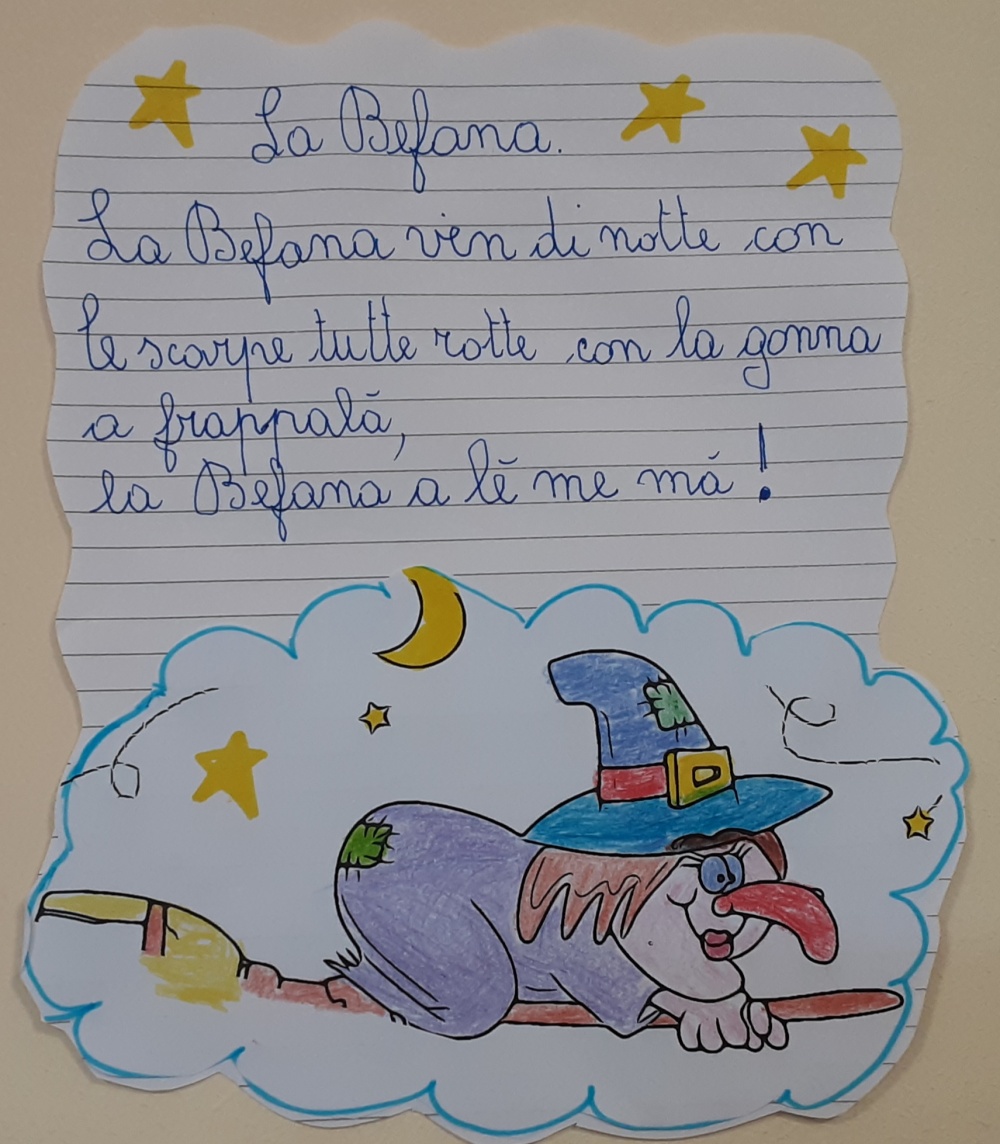 La Befana.
La Befana vien di notte con
le scarpe tutte rotte con la gonna
a frappalà,
la Befana a lè me mà!